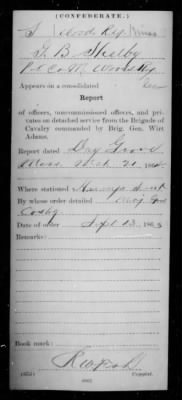 (CONFEDERATE.)
S Wood's Reg. Miss.
T. B. Shelby
Co. M, Wood's Reg
Appears on a consolidated
Report
of officers, noncommissioned officers, and pri-
vates on detached service from the Brigade of
Cavalry commanded by Brig. Gen. Wirt
Adams.
Report dated Dry Grove
Miss. Mch 20, 186
Where stationed
By whose order detailed
Cosby
Date of order Sept 13, 1863
Remarks:
Book mark:
(635)
Copyist.